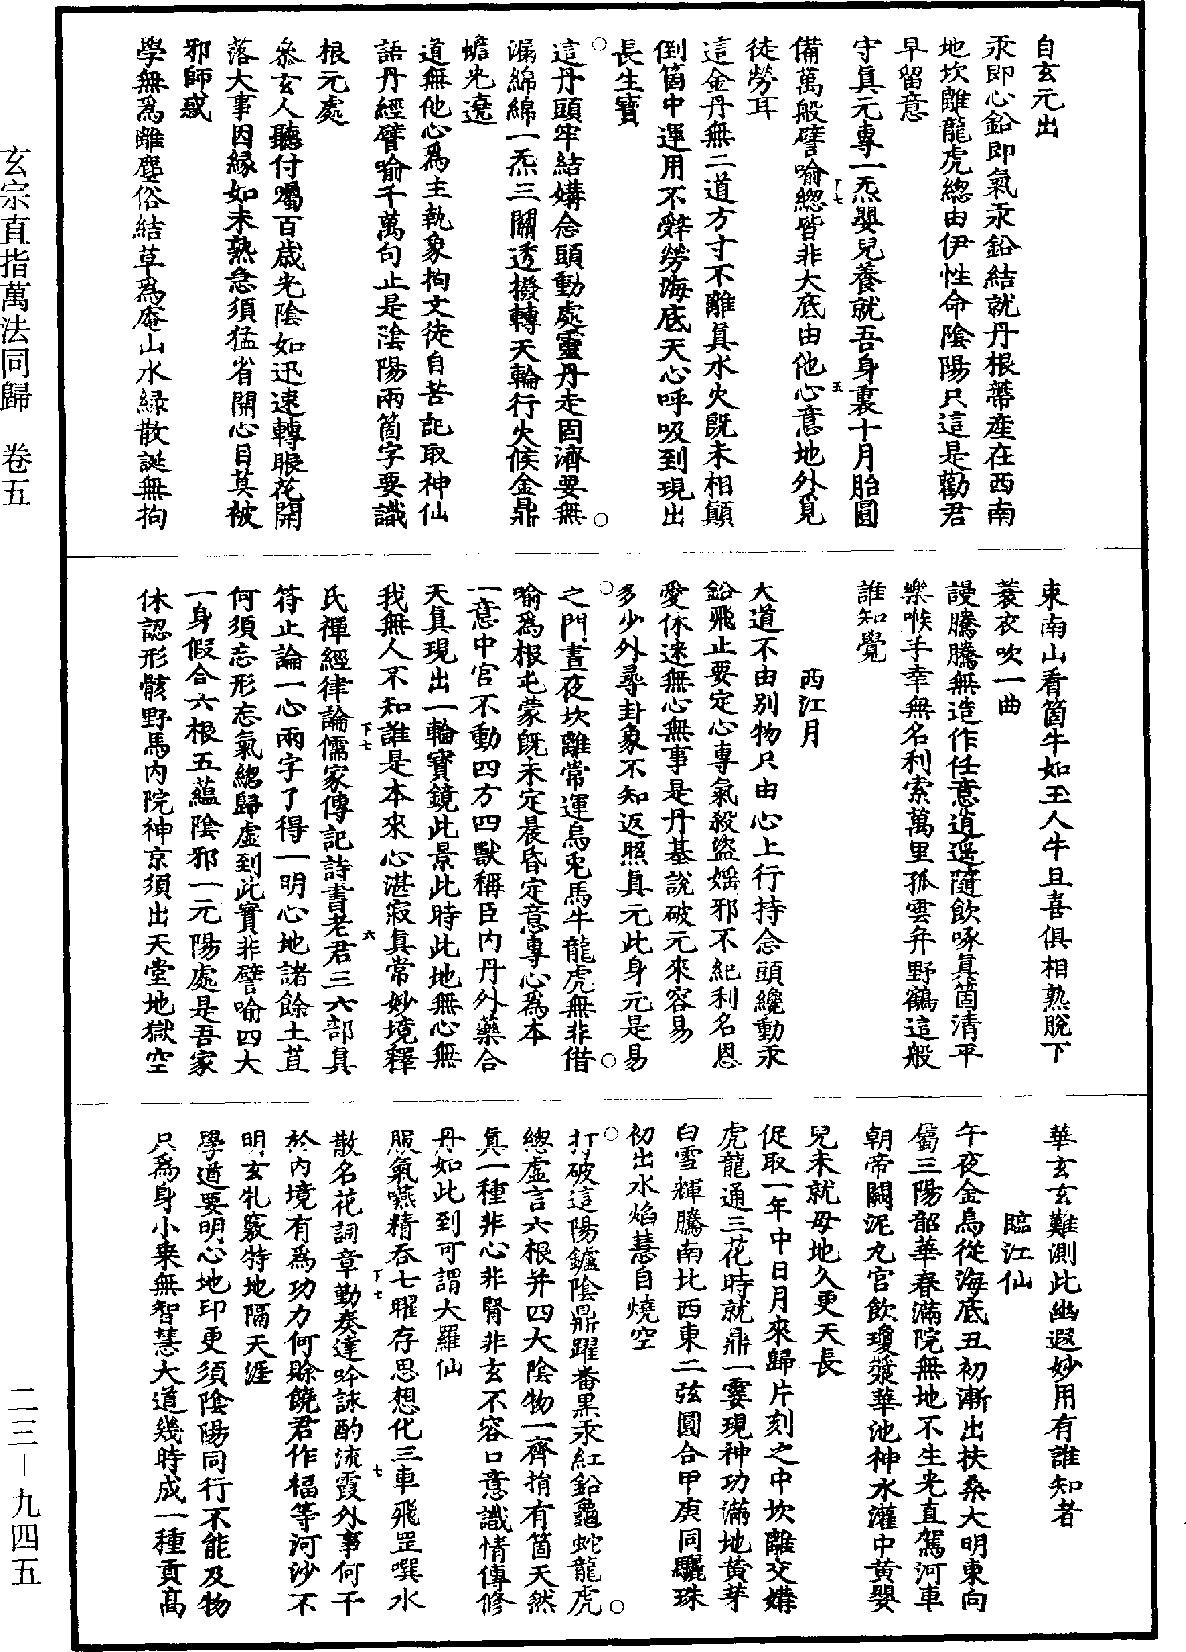 自玄元出
汞即心鉛即氣汞鉛結就丹根蒂產在西南
地坎離龍虎緫由伊性命陰陽只這是勸君
早留意
守真元專一炁嬰兒養就吾身裏十月胎圓
備萬般譬喻緫皆非大底由他心意地外覓
徒勞耳
這金丹無二道方寸不離真水火旣未相顛
倒箇中運用不辭勞海底天心呼吸到現出
長生寶
這丹頭牢結媾念頭動處靈丹走固濟要無
漏綿綿一炁三關透撥轉天輪行火候金鼎
蟾光遼
道無他心為主執象拘文徒自苦記取神仙
語丹經譬喻千萬句止是陰陽兩箇字要識
根元處
叅玄人聽付囑百歲光陰如迅速轉眼花開
落大事因緣如未熟急須猛省開心目莫被
邪師惑
學無為離塵俗結草為庵山水緑散誕無拘
東南山看箇牛如玉人牛且喜俱相熟脫下
蓑衣吹一曲
謾騰騰無造作任意逍遥隨飲啄真箇清平
樂嗾手幸無名利索萬里孤雲并野鶴這般
誰知覺
西江月
大道不由別物只由心上行持念頭纔動汞
鉛飛止要定心專氣殺盜婬邪不絶利名恩
愛休迷無心無事是丹基說破元來容易
多少外尋卦象不知返照真元此身元是易
之門晝夜坎離常運烏兎馬牛龍虎無非借
喻為根屯蒙旣未定晨昏定意專心為本
一意中官不動四方四獸稱臣內丹外藥合
天真現出一輪寶鏡此景此時此地無心無
我無人不知誰是本來心湛寂真常妙境釋
氏禪經律論儒家傳記詩書老君三六部真
符止論一心兩字了得一明心地諸餘土苴
何須忘形忘氣緫歸虛到此實非譬喻四大
一身假合六根五蘊陰邪一元陽處是吾家
休認形骸野馬內院神京須出天堂地獄空
華玄玄難測此幽遐妙用有誰知者
臨江仙
午夜金烏從海底丑初漸出扶桑大明東向
屬三陽韶華春滿院無地不生光直駕河車
朝帝闕泥丸宮飲瓊漿華池神水灌中黃嬰
兒未就母地久更天長
促取一年中日月來歸片刻之中坎離交媾
虎龍通三花時就鼎一霎現神功滿地黃芽
白雪輝騰南北西東二弦圓合甲庚同驪珠
初出水焰慧自燒空
打破這陽鑪陰鼎躍番黑汞紅鉛龜蛇龍虎
緫虛言六根并四大陰物一齊捐有箇天然
真一種非心非腎非玄不容口意識情傳修
丹如此到可謂大羅仙
服氣嚥精吞七曜存思想化三車飛罡噀水
散名花詞章勤奏達吟詠酌流霞外事何干
於內境有為功力何賒饒君作福等河沙不
明玄牝竅特地隔天涯
學道要明心地印更須陰陽同行不能及物
只為身小乘無智慧大道幾時成一種貢高
玄宗直指萬法同歸　卷五
二三－九四五